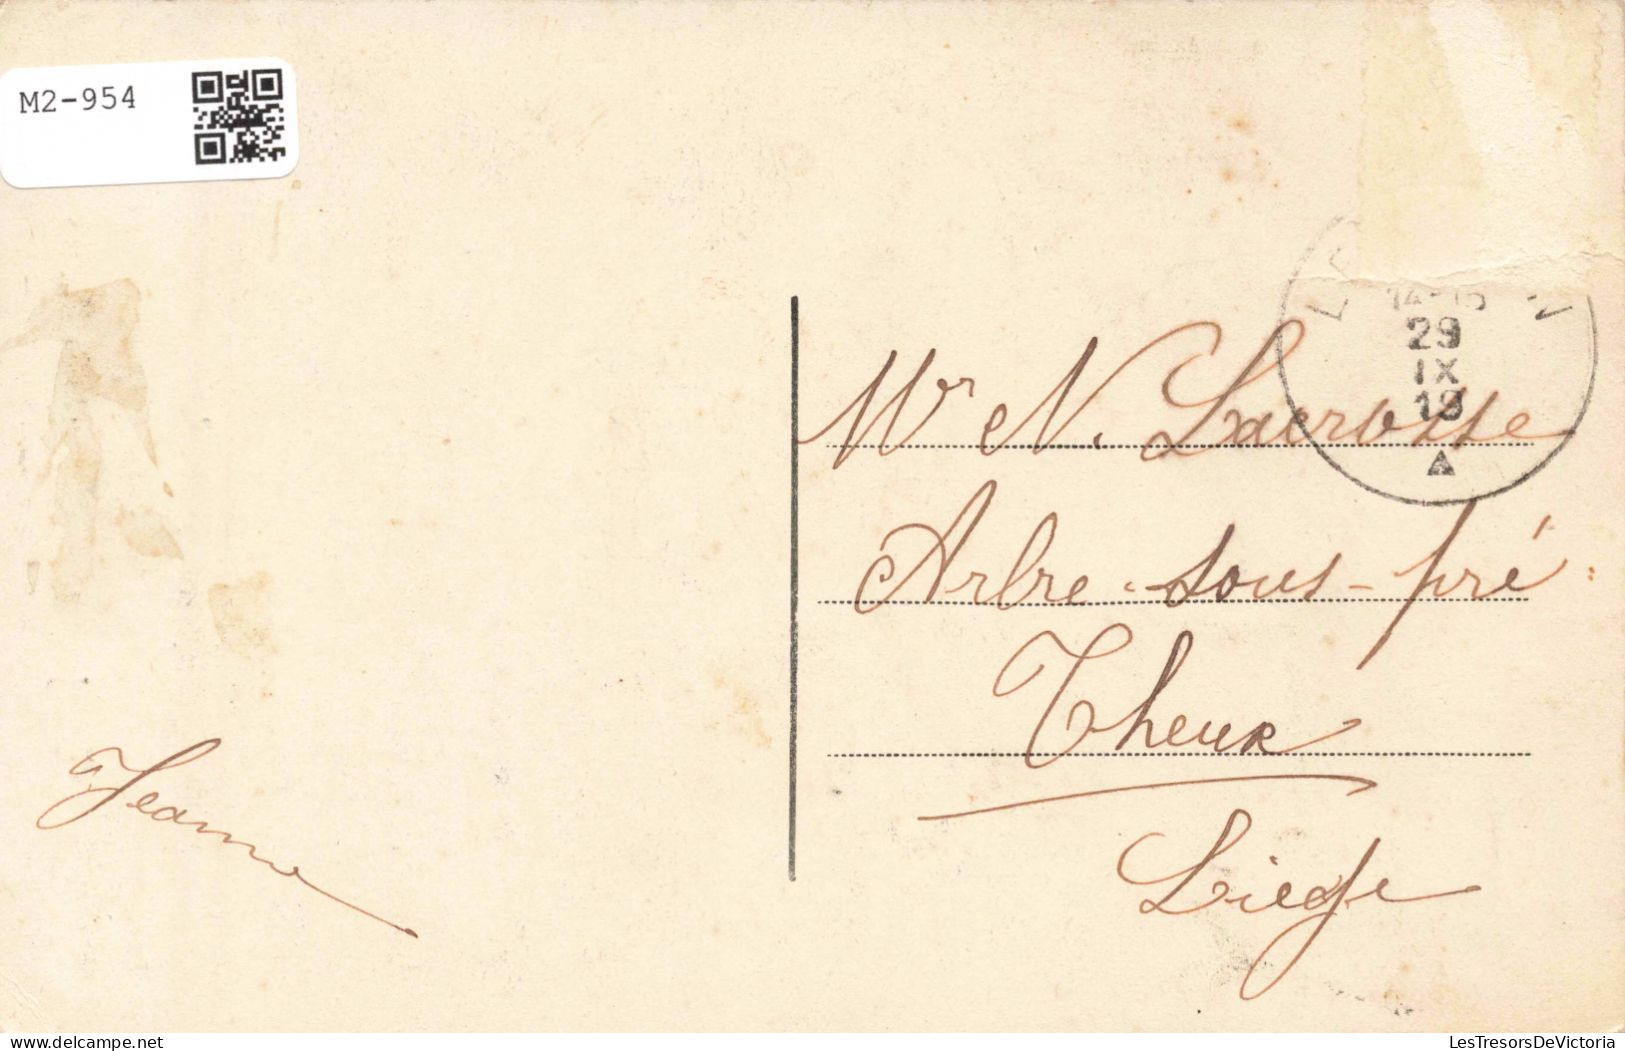 M2-954
14-15
29
IX
19
Mr N. Lacrosse
Arbre-sous-pré
Theux
Liege
Jeanne
delcampe.net
LesTresorsDeVictoria